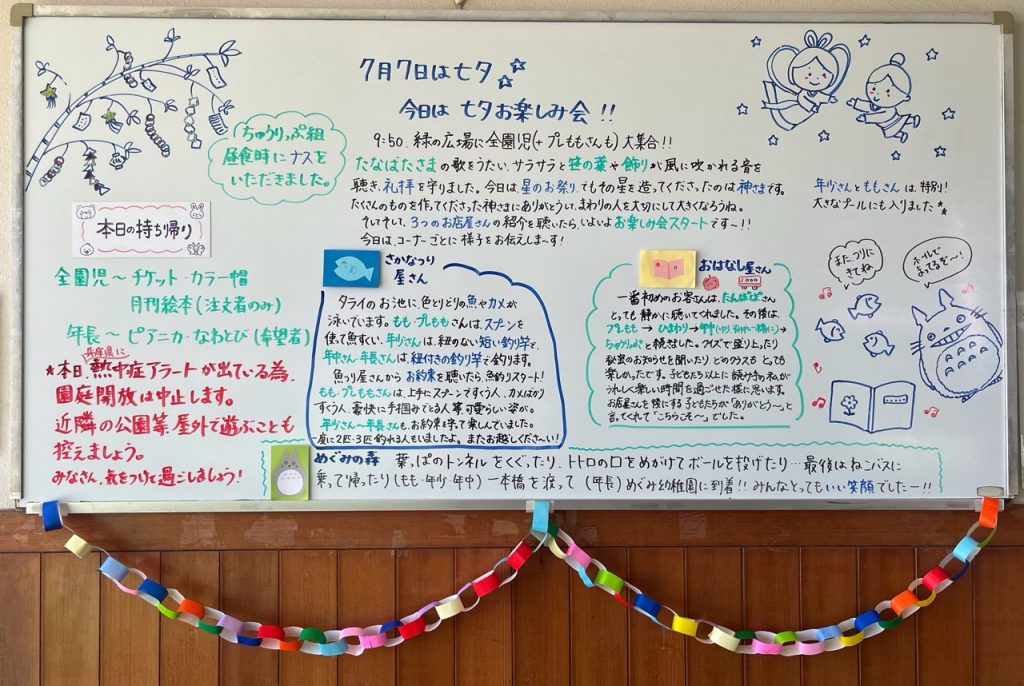 7月7日は七夕
今日は 七夕お楽しみ会!!
ちゅうりっぷ組
昼食時にナスを
いただきました。
9:50、緑の広場に全園児(+プレももさんも)大集合!!
たなばたさまの歌をうたい、サラサラと笹の葉や飾りが風に吹かれる音を
聴き、礼拝を守りました。今日は、星のお祭り、でもその星を造ってくださったのは神さまです。
たくさんのものを作ってくださった神さまにありがとうといい、まわりの人を大切にして大きくなろうね。
そしてそして、3つのお店屋さんの紹介を聴いたら、いよいよお楽しみ会スタートです〜!!
今日は、コーナーごとに様子をお伝えしま〜す!
年少さんとももさんは、特別!
大きなプールにも入りました
本日の持ち帰り
全園児〜チケット・カラー帽
月刊絵本(注文者のみ)
年長〜ピアニカ・なわとび(希望者)
兵庫県に
★本日、熱中症アラートが出ている為、
園庭開放は中止します。
近隣の公園等、屋外で遊ぶことも
控えましょう。
みなさん、気をつけて過ごしましょう!
さかなつり
屋さん
タライのお池に、色とりどりの魚やカメが
泳いでいます。もも・プレももさんは、スプーンを
使って魚すくい、年少さんは、紐のない短い釣り竿で、
年中さん・年長さんは、紐付きの釣り竿で釣ります。
魚つり屋さんからお約束を聴いたら、魚釣りスタート!
もも・プレももさんは、上手にスプーンですくう人、カメばかり
すくう人、豪快に手掴みでとる人等、可愛らしい姿が。
年少さん〜年長さんも、お約束を守って楽しんでいました。
一度に2匹・3匹釣れる人もいましたよ。またお越しくださ〜い!
おはなし屋さん
一番初めのお客さんは、たんぽぽさん
とっても静かに聴いてくれました。その後は、
ちゅうりっぷと続きました。クイズで盛り上ったり
秘密のお知らせを聞いたりとどのクラスもとっても
楽しかったです。子どもたち以上に読みきかせの私が
うれしく楽しい時間を過ごせた様に思います。
お店屋さんを後にする子どもたちが「ありがとう〜」と
言ってくれて「こちらこそ〜」でした。
また、つりに
きてね
ボールなげて
まってるぞ〜!
めぐみの森 葉っぱのトンネルをくぐったり、トトロの口をめがけてボールを投げたり…最後はねこバスに
乗って帰ったり(もも・年少・年中)一本橋を渡って(年長)めぐみ幼稚園に到着!!みんなとってもいい笑顔でしたー!!